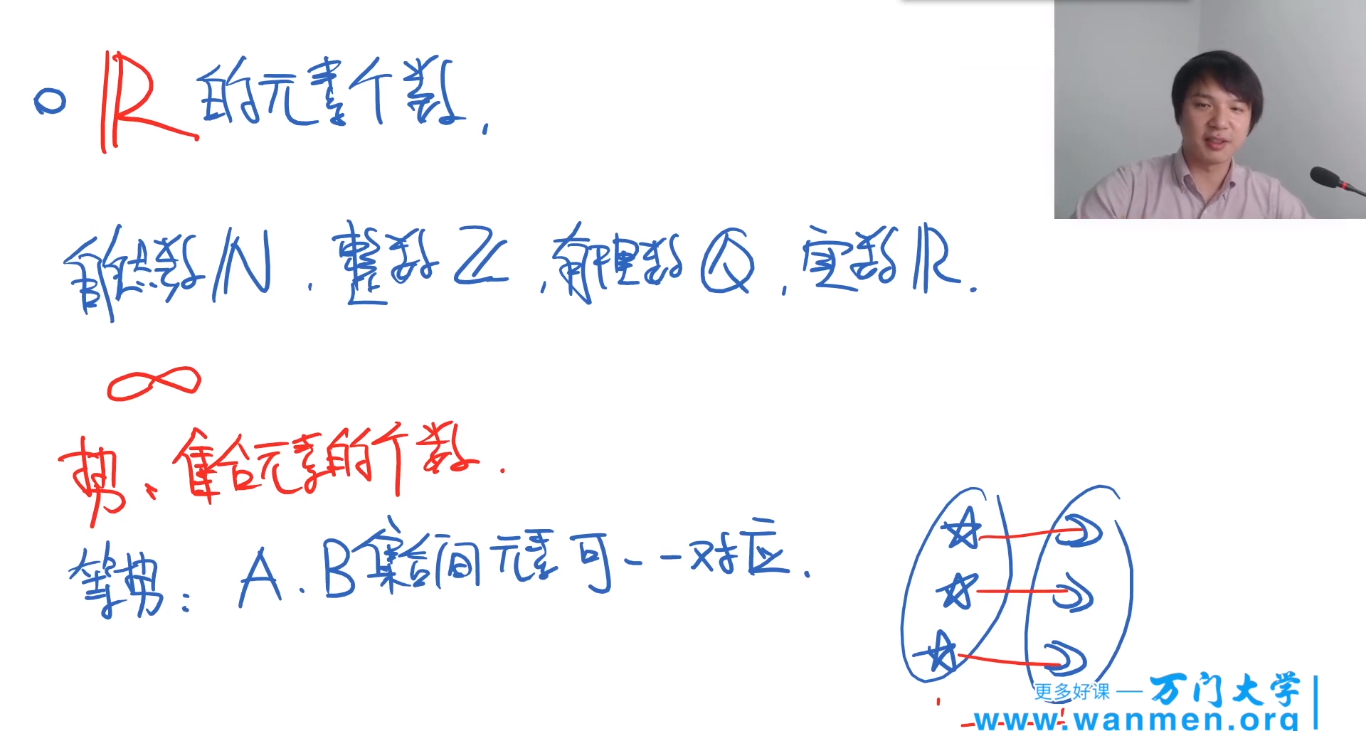 ℝ的元素个数.
自然数ℕ.整数ℤ,有理数ℚ,实数ℝ.
∞
势:集合元素的个数.
等势: A.B集合间元素可一一对应.
更多好课 — 万门大学
www.wanmen.org